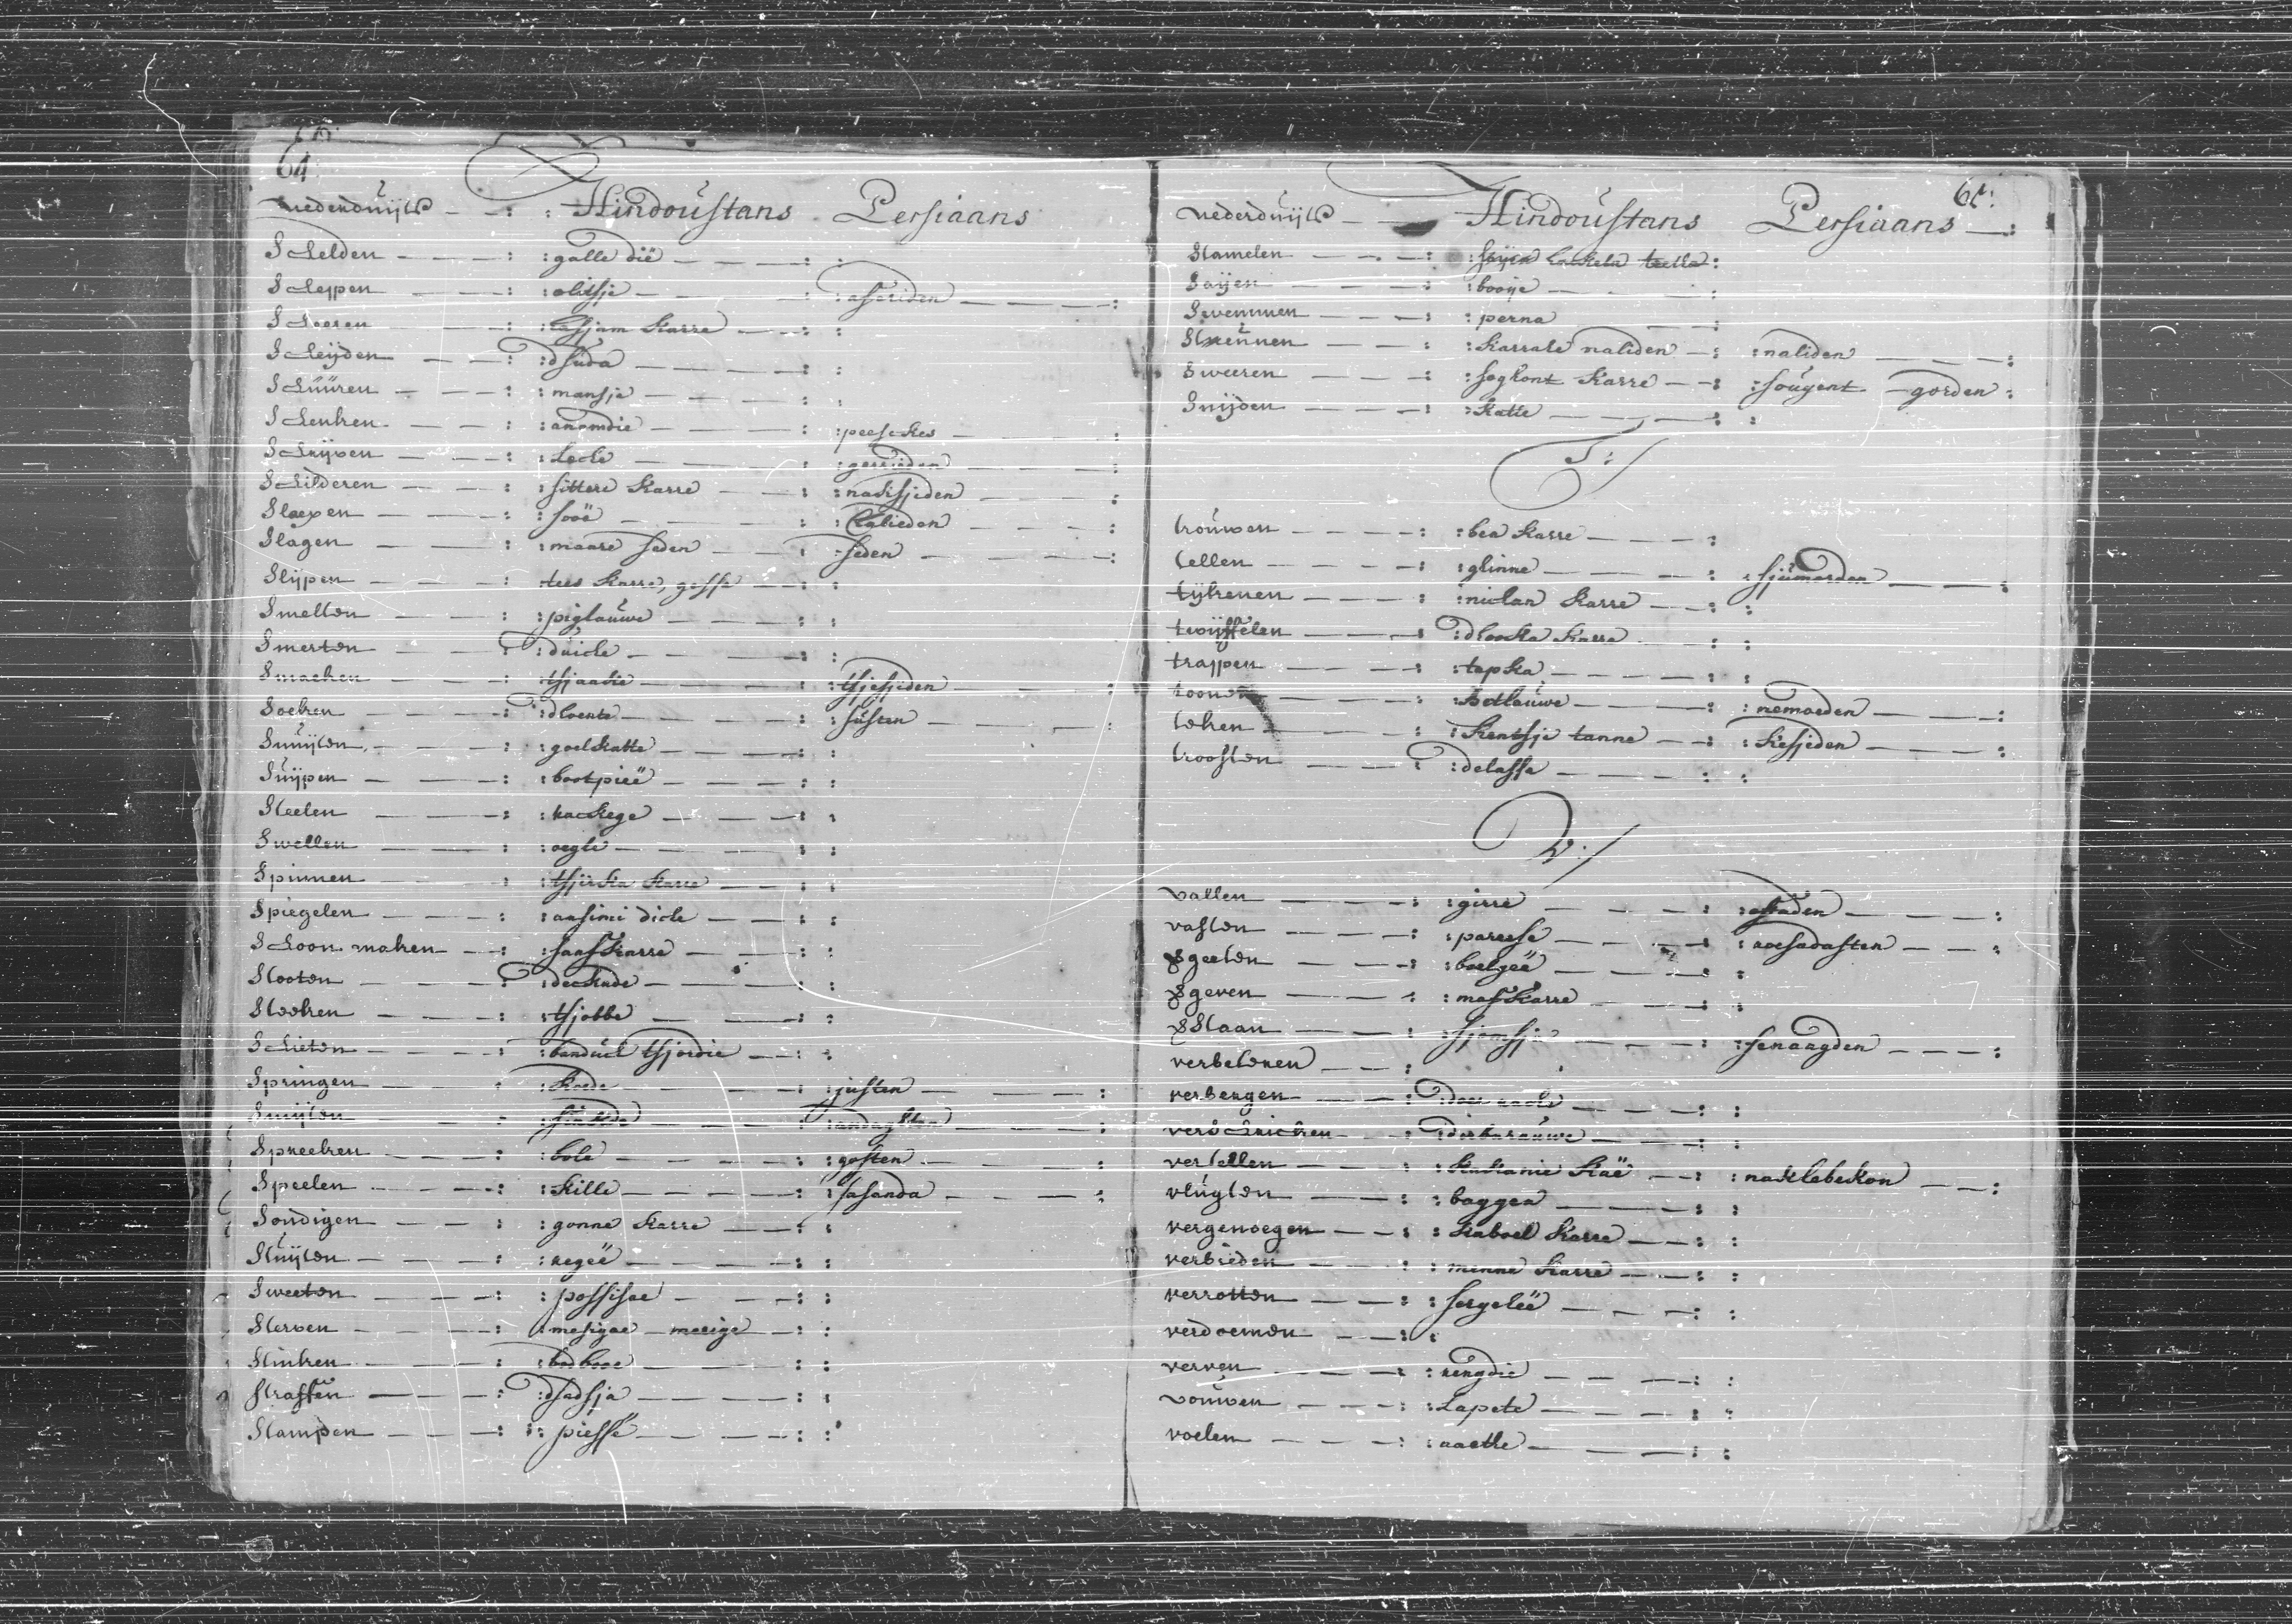 64
Nederduijts : : Hindoustans Persiaans
Schelden : : galle dië : :
Scheppen : : olitsje : : afariden :
Scheeren : : hasjam Karre : :
Scheijden : : dsuda : :
Schuuren : : mansje : :
Schenken : : anamdie : : peeskes :
Schrijven : : Leche :
Schilderen : : sittere Karre : : nackisjiden :
Slaepen : : sooë :
Slagen : : maare seden : : seden :
Slijpen : : tees Karre, gosse : :
Smelten : : piglauwe : :
Smerten : : duiche : :
Smaeken : : tsjaakie : : tsjesjiden :
Soeken : : dhoente : : susten :
Snuijten : : goelkatte : :
Suijpen : : bootpieë : :
Steelen : :
Swellen : : oegle : :
Spinnen : : tsjirka Karre : :
Spiegelen : : aasimi diche : :
Schoon maken : : saafkarre : :
Stooten : : deckade : :
Steeken : : tsjobbe : :
Schieten : : banduck tsjordie : :
Springen : : Koede : : justen :
Smijten :
Spreeken : : bole : : gosten :
Speelen : : Kille : : sasanda :
Sondigen : : gonne Karre : :
Stuijten : : regeë : :
Sweeten : : possisoe : :
Sterven : : mesigae - merige : :
Stinken : : bodboee : :
Straffen : : dsadsja : :
Stampen : : piesse : :
65
Nederduijts Hindoustans Persiaans :
Stamelen :
Saijen : : booije :
Swemmen : : perna :
Steunnen : : Karrale naliden : : naliden :
Sweeren : : sogkont Karre : : sougent gorden :
Snijden : : Katte : :
T:
trouwen : : bea Karre :
tellen : : ginne : : sjumorden :
tijkenen : : nichan Karre : :
twijffelen : : dhooka Karre : :
trappen : : tapka : :
toonen : : Botlauwe : : nemoeden :
teken : : Kentsje tanne : : Kesjeden :
troosten : : delassa : :
V:
vallen : : girre : : oftaden :
vasten : : pareese : : roesadasten :
vgeeten : : boelgeë : :
vgeven : : mafkarre : :
vstaan : : sjomsje : : senaagden :
verbetenen :
verbergen :
verschricken : : dirbarauwe : :
vertellen : : Kackanie Kaë : : nacklebekon :
vlugten : : baggea : :
vergenoegen : : Kaboel Karre : :
verbieden : : menne Karre : :
verrotten : : sorgeleë : :
verdoemen : :
verven : : rengdie : :
vouwen : : Lapete : :
voelen : :